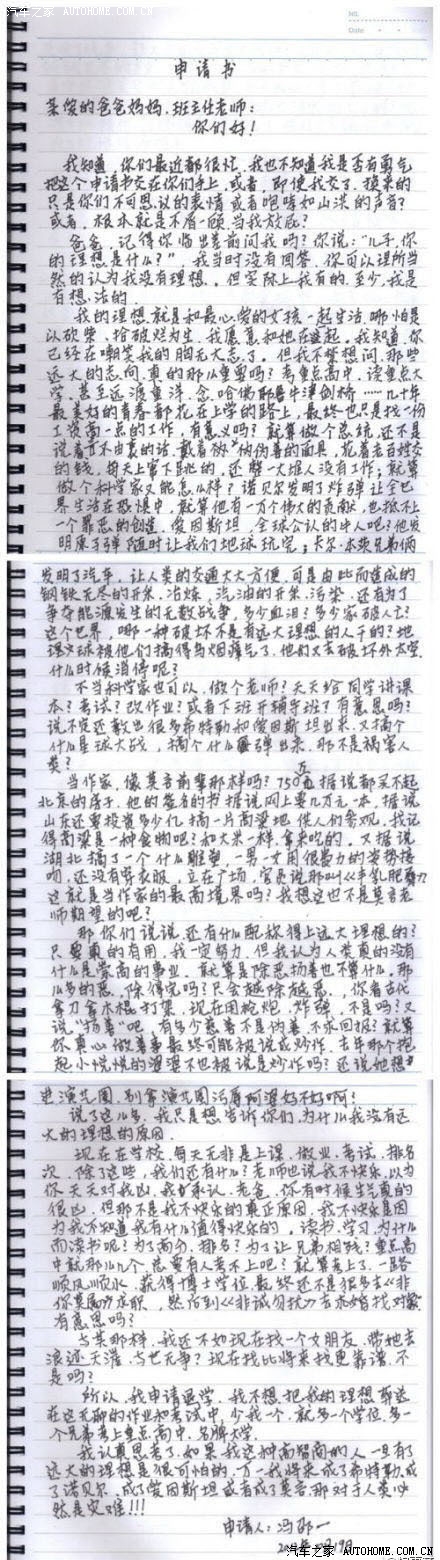 汽车之家 AUTOHOME.COM.CN
NO.
Date
申请书
亲爱的爸爸妈妈、班主任老师:
你们好!
我知道,你们最近都很忙,我也不知道我是否有勇气
把这个申请书交在你们手上,或者,即使我交了,换来的
只是你们不可思议的表情或者咆哮如山洪的声音?
或者,根本就是不屑一顾,当我放屁?
爸爸,记得你临出差前问我吗?你说:“儿子,你
的理想是什么?”,我当时没有回答,你可以理所当
然的认为我没有理想。但实际上我有的,至少,我是
有想法的。
我的理想就是和最心爱的女孩一起生活,哪怕是
以砍柴、拾破烂为生,我愿意和她在一起。我知道,你
已经在嘲笑我的胸无大志了。但我不禁想问,那些
远大的志向,真的那么重要吗?考重点高中,读重点大
学,甚至远渡重洋,念哈佛耶鲁牛津剑桥……几十年
最美好的青春都花在上学的路上,最终也只是找一份
工资高一点的工作,有意义吗?就算做个总统,还不是
说着言不由衷的话,戴着伪善的面具,花着老百姓交
的钱,每天上窜下跳的,还弊一大堆人没有工作,就算
做个科学家又能怎么样?诺贝尔发明了炸弹让全世
界生活在恐惧中,就算他有一万个伟大的贡献,也抵不上
一个罪恶的创造。爱因斯坦,全球公认的牛人吧?他发
明原子弹随时让我们地球玩完;卡尔·本茨兄弟俩
发明了汽车,让人类的交通大大方便,可是由此而造成的
钢铁无尽的开采、冶炼,汽油的开采、污染,还有为了
争夺能源发生的无数战争,多少血泪?多少家破人亡?
这个世界,哪一种破坏不是有远大理想的人干的?地
球被他们搞得乌烟瘴气了,他们又去破坏外太空,
什么时候消停呢?
不当科学家也可以,做个老师?天天给同学讲课
本?考试?改作业?或者下班开辅导班?有意思吗?
说不定还教出很多希特勒和爱因斯坦出来,又搞个
什么星球大战,搞个什么弹出来,那不是祸害人
类?
当作家,像莫言前辈那样吗?750万近据说都买不起
北京的房子,他的签名的书据说网上要几万元一本,据说
山东还要投资多少亿,搞一片高粱地,供人们参观,我记
得高粱是一种食物吧?和大米一样,拿来吃的。又据说
湖北搞了一个什么雕塑,一男一女用很费力的姿势接
吻,还没有穿衣服,立在广场,官员说那叫《丰乳肥臀》,
这就是当作家的最高境界吗?我想这也不是莫言老
师期望的吧?
那你们说说,还有什么配称得上远大理想的?
只要真的有用,我一定努力,但我认为人类真的没有
什么是崇高的事业,就算是除恶扬善也不算什么,那
么多的恶,除得完吗?只会越除越恶。你看古代
拿刀拿木棍打架,现在用枪炮、炸弹,不是吗?又
说“扬善”吧,有多少慈善不是伪善,不求回报?就算
你真心做善事最终可能被说成炒作,去年那个抱
起小悦悦的婆婆不也被说是炒作吗?还说她想
进演艺圈,别拿演艺圈污辱阿婆好不好啊!
说了这么多,我只是想告诉你们,为什么我没有远
大的理想的原因。
现在在学校,每天无非是上课、做业、考试、排名
次,除了这些,我们还有什么?老师也说我不快乐,以为
你天天对我凶,我承认,老爸,你有时候生气真的
很凶,但那不是我不快乐的真正原因,我不快乐是因
为我不知道我有什么值得快乐的。读书、学习,为什么
而读书呢?为了高分、排名?为了让兄弟相残?重点高
中就那么几个,总要有人考不上吧?就算考上了,一路
顺风顺水,获得博士学位,最终还不是很多去《非
你莫属》求职,然后到《非诚勿扰》去求婚找对象,
有意思吗?
与其那样,我还不如现在找一个女朋友,带她去
浪迹天涯,与世无争?现在找比将来找更靠谱,不
是吗?
所以,我申请退学,我不想把我的理想葬送
在这无聊的作业和考试中,少我一个,就多一个学位,多一
个兄弟考上重点高中、名牌大学。
我认真思考了,如果我这种高智商的人一旦有了
远大的理想是很可怕的,万一我将来成了希特勒,成
了诺贝尔,成了爱因斯坦或者成了莫言,那对于人类必
然是灾难!!!
申请人:冯邵一
汽车之家 AUTOHOME.COM.CN